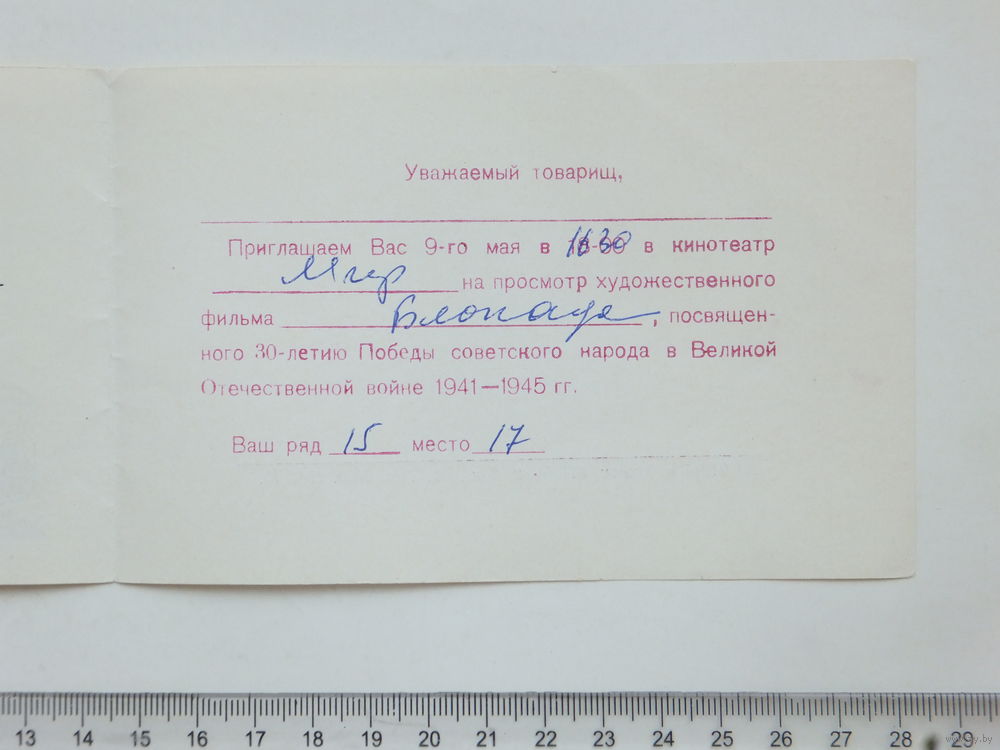 Уважаемый товарищ,
Приглашаем Вас 9-го мая в 1630 в кинотеатр
Мир на просмотр художественного
фильма Блокада, посвящен-
ного 30-летию Победы советского народа в Великой
Отечественной войне 1941—1945 гг.
Ваш ряд 15 место 17
13 14 15 16 17 18 19 20 21 22 23 24 25 26 27 28 29